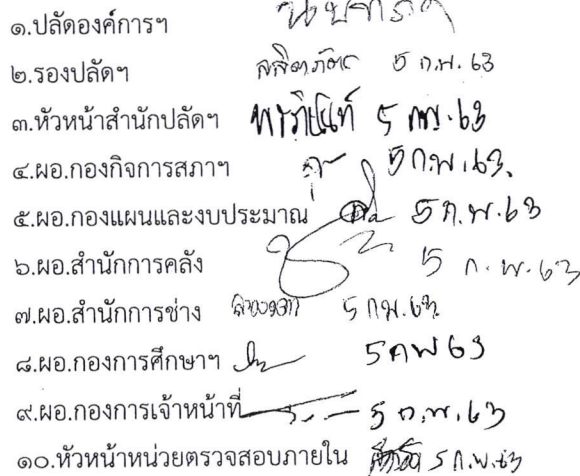 ๑.ปลัดองค์การฯ
๒.รองปลัดฯ 5 ก.พ. 63
๓.หัวหน้าสำนักปลัดฯ 5 กพ. 63
๔.ผอ.กองกิจการสภาฯ 5 ก.พ. 63.
๕.ผอ.กองแผนและงบประมาณ 5 ก.พ. 63
๖.ผอ.สำนักการคลัง 5 ก. พ. 63
๗.ผอ.สำนักการช่าง 5 กพ. 63
๘.ผอ.กองการศึกษาฯ 5 กพ 63
๙.ผอ.กองการเจ้าหน้าที่ 5 ก.พ. 63
๑๐.หัวหน้าหน่วยตรวจสอบภายใน 5 ก.พ. 63